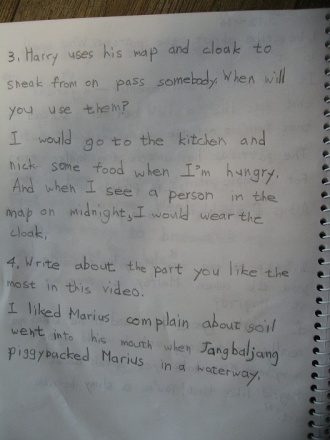 3. Harry uses his map and cloak to
sneak from on pass somebody. When will
you use them?
I would go to the kitchen and
nick some food when I'm hungry.
And when I see a person in the
map on midnight, I would wear the
cloak.
4. Write about the part you like the
most in this video.
I liked Marius complain about soil
went into his mouth when Jangbaljang
piggypacked Marius in a waterway.